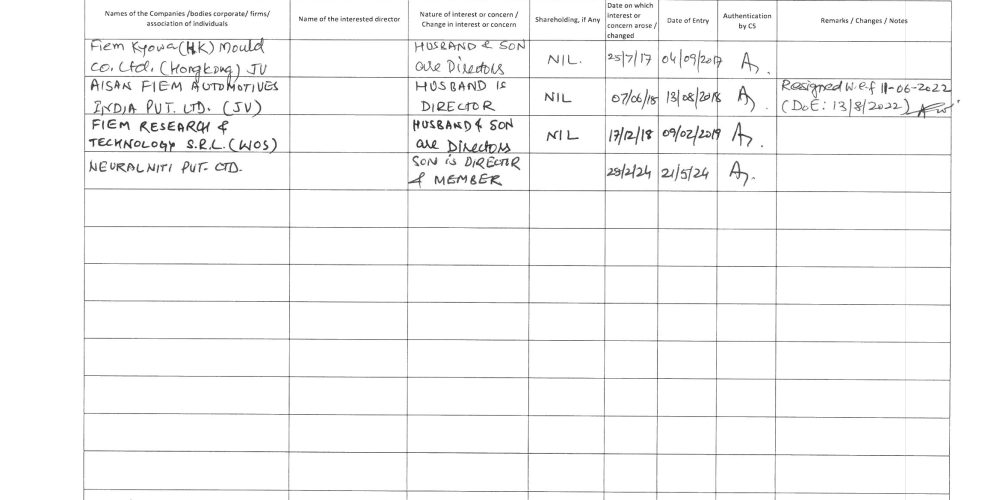 Names of the Companies /bodies corporate/ firms/ association of individuals
Name of the interested director
Nature of interest or concern / Change in interest or concern
Shareholding, if Any
Date on which interest or concern arose / changed
Date of Entry
Authentication by CS
Remarks / Changes / Notes
Fiem Kyowa (HK) Mould
Co. Ltd. (Hongkong) JV
HUSBAND & SON
are Directors
NIL.
25/7/17
04/09/2017
AISAN FIEM AUTOMOTIVES
INDIA PVT. LTD. (JV)
HUSBAND IS
DIRECTOR
NIL
07/06/18
13/08/2018
Resigned w.e.f 11-06-2022
(DoE: 13/8/2022)
FIEM RESEARCH &
TECHNOLOGY S.R.L. (WOS)
HUSBAND & SON
are DIRECTORS
NIL
17/12/18
09/02/2019
NEURALNITI PVT. LTD.
SON IS DIRECTOR
& MEMBER
29/2/24
21/5/24